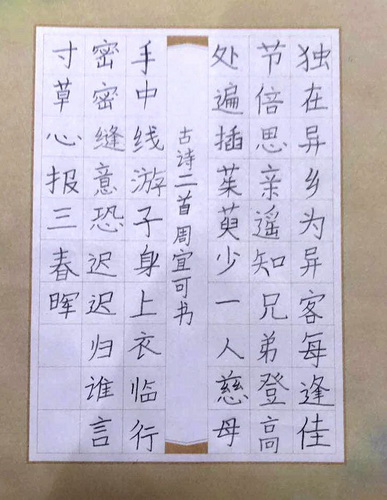 独在异乡为异客每逢佳
节倍思亲遥知兄弟登高
处遍插茱萸少一人慈母
古诗二首周宜可书
手中线游子身上衣临行
密密缝意恐迟迟归谁言
寸草心报三春晖